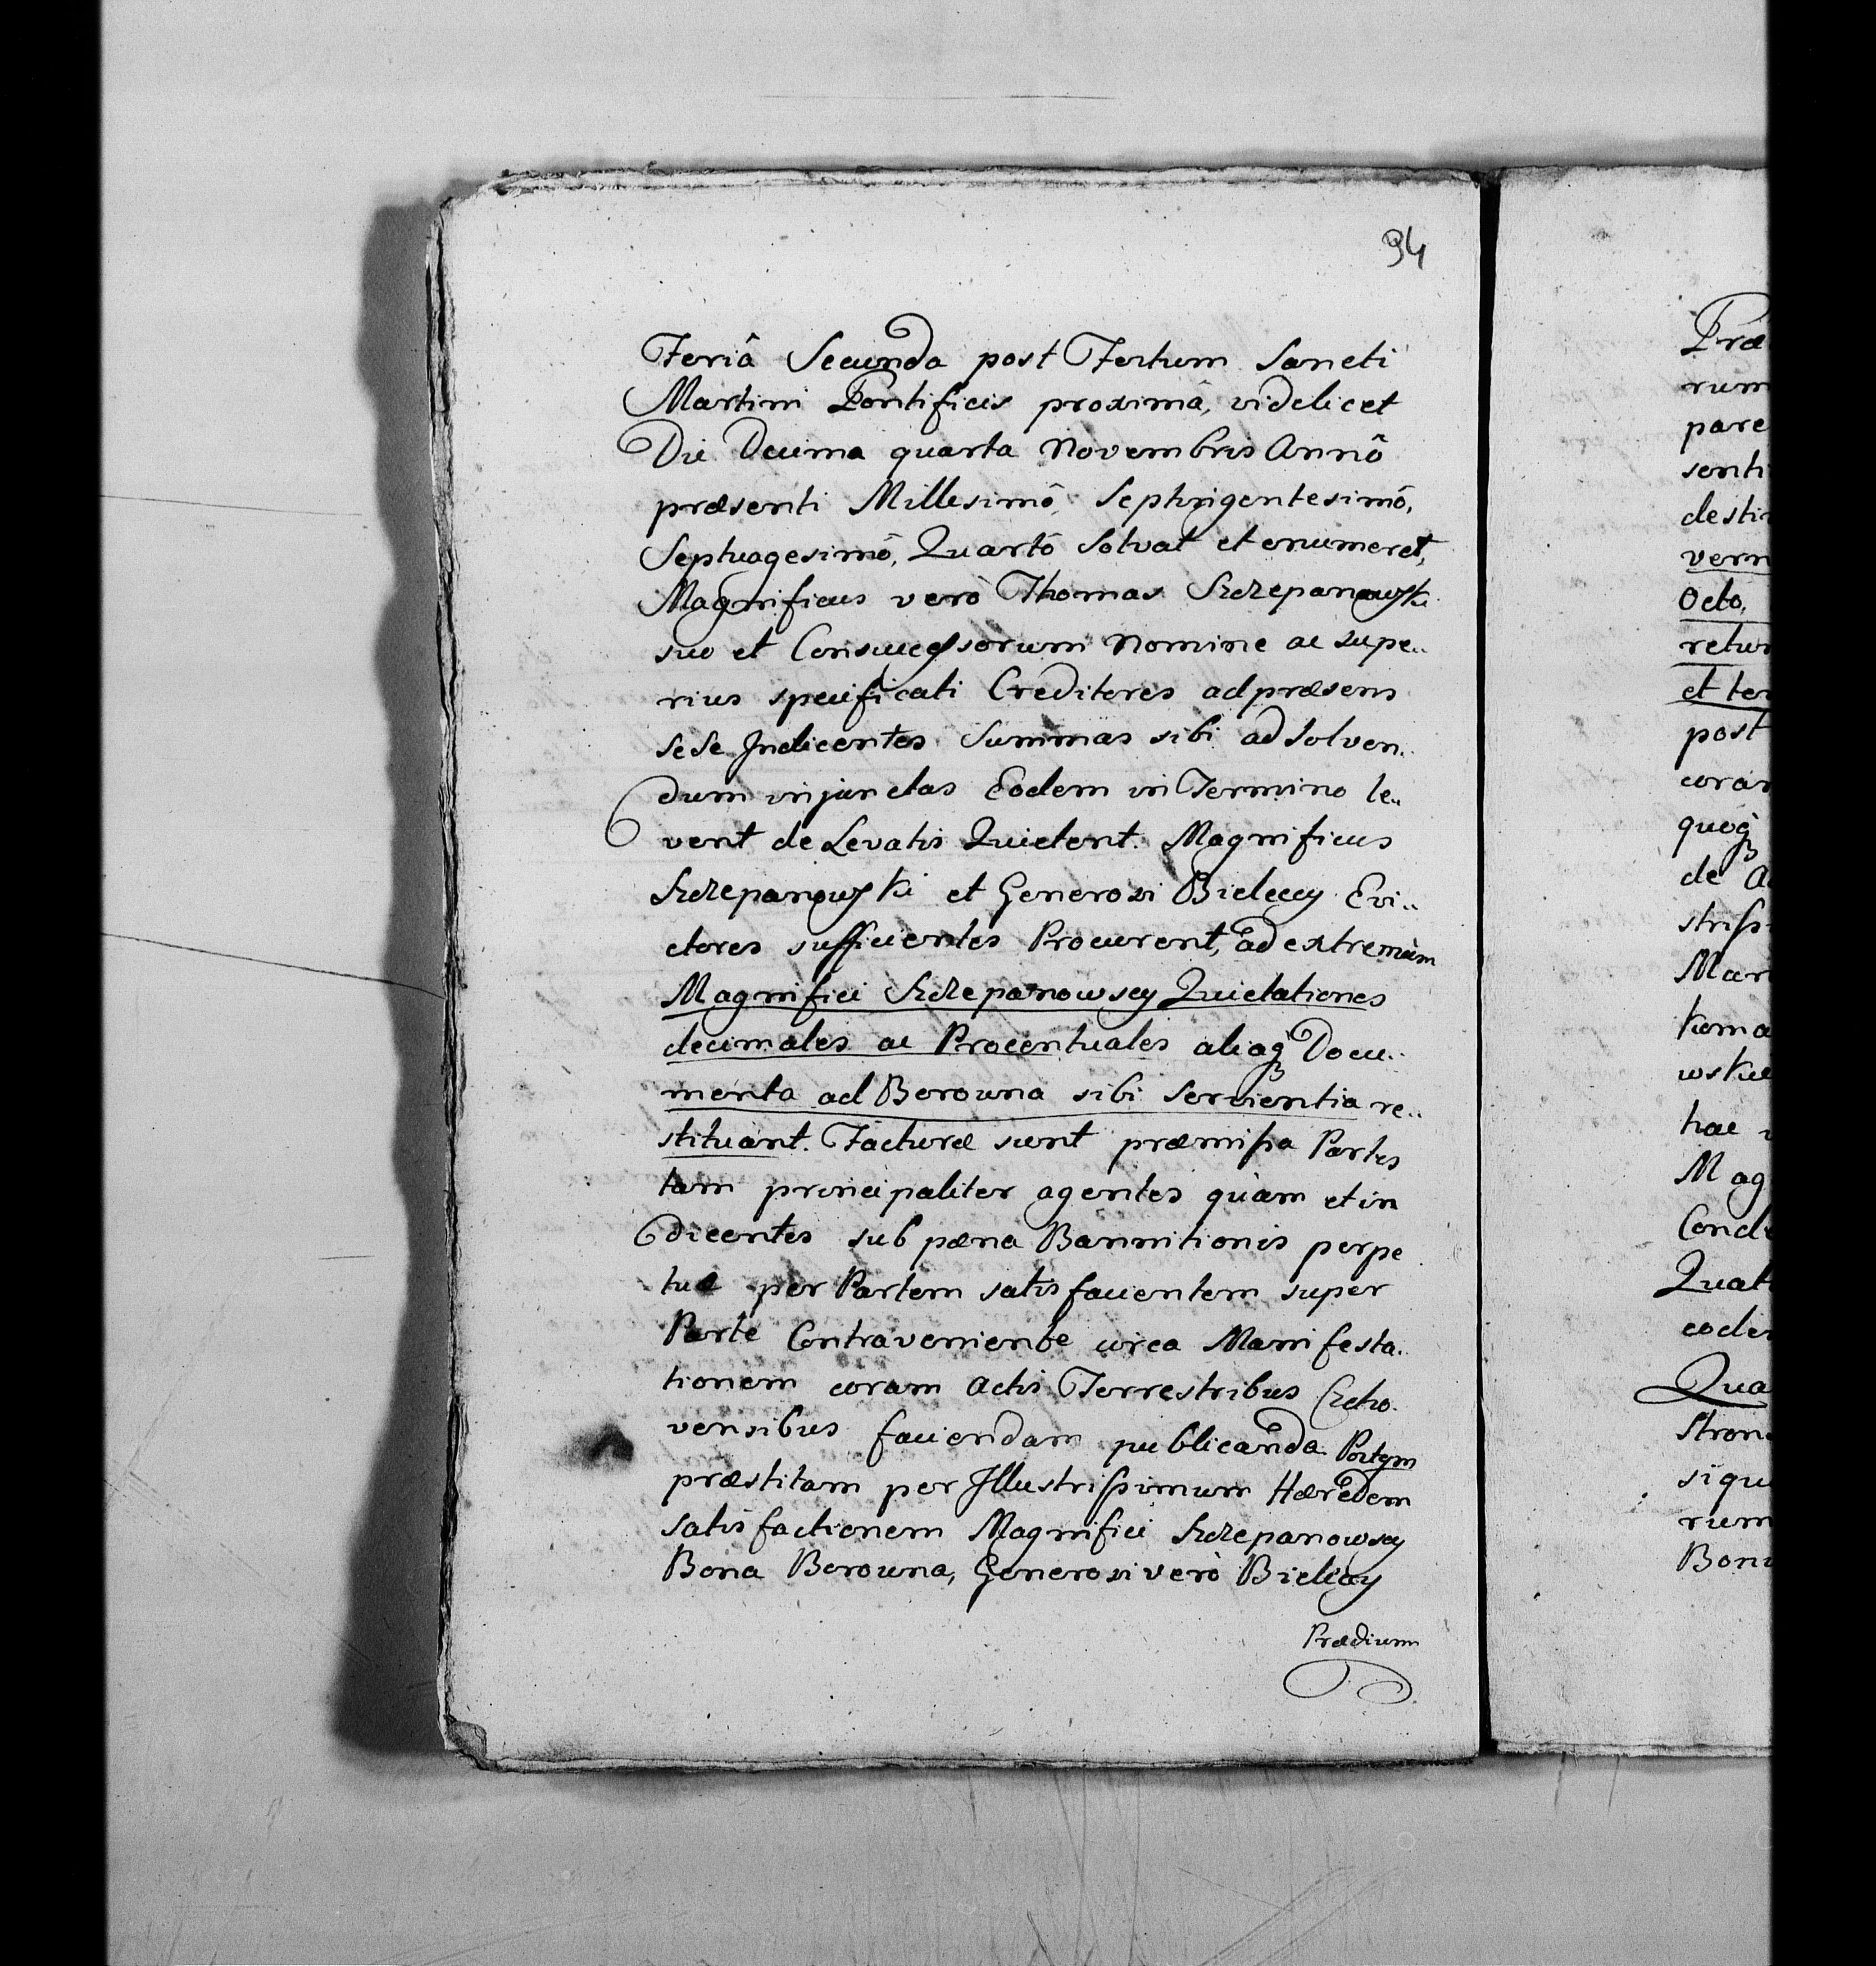 94
Feriâ Secunda post Festum Sancti
Martini Pontificis proximâ, videlicet
Die Decima quarta Novembris Annô
præsenti Millesimô, Septingentesimô,
Septuagesimô, Quartô Solvat et enumeret,
Magnificus verò Thomas Szczepanowski
suo et Consuccessorum Nomine ac supe„
rius specificati Creditores ad præsens
sese Indicentes Summas sibi ad Solven„
dum injunctas Eodem in Termino le„
vent de Levatis Quietent. Magnificus
Szczepanowski et Generosi Bieleccy Evi„
ctores sufficientes Procurent, ad extremùm
Magnifici Szczepanowscy Quietationes
decimales ac Procentuales aliaq3 Docu„
menta ad Borowna sibi Servientia re„
stituant. Facturæ sunt præmissa Partes
tam principaliter agentes quàm et in
dicentes sub pæna Bannitionis perpe
tuæ per Partem satisfacientem super
Parte Contraveniente circa Manifesta„
tionem coram Actis Terrestribus Czcho„
vensibus faciendam publicanda. Postqm
præstitam per Illustrissimum Hæredem
satisfactionem Magnifici Szczepanowscy
Bona Borowna, Generosi verò Bieleccy
Prædium
Præ
rum
pare
senti
destin
vern
Octo,
retur
et ter
post
coram
quoq3
de A
striss
Mar
koma
wskie
hac
Mag
Cond
Quat
eoder
Qua
Stron
siqu
rum
Bon